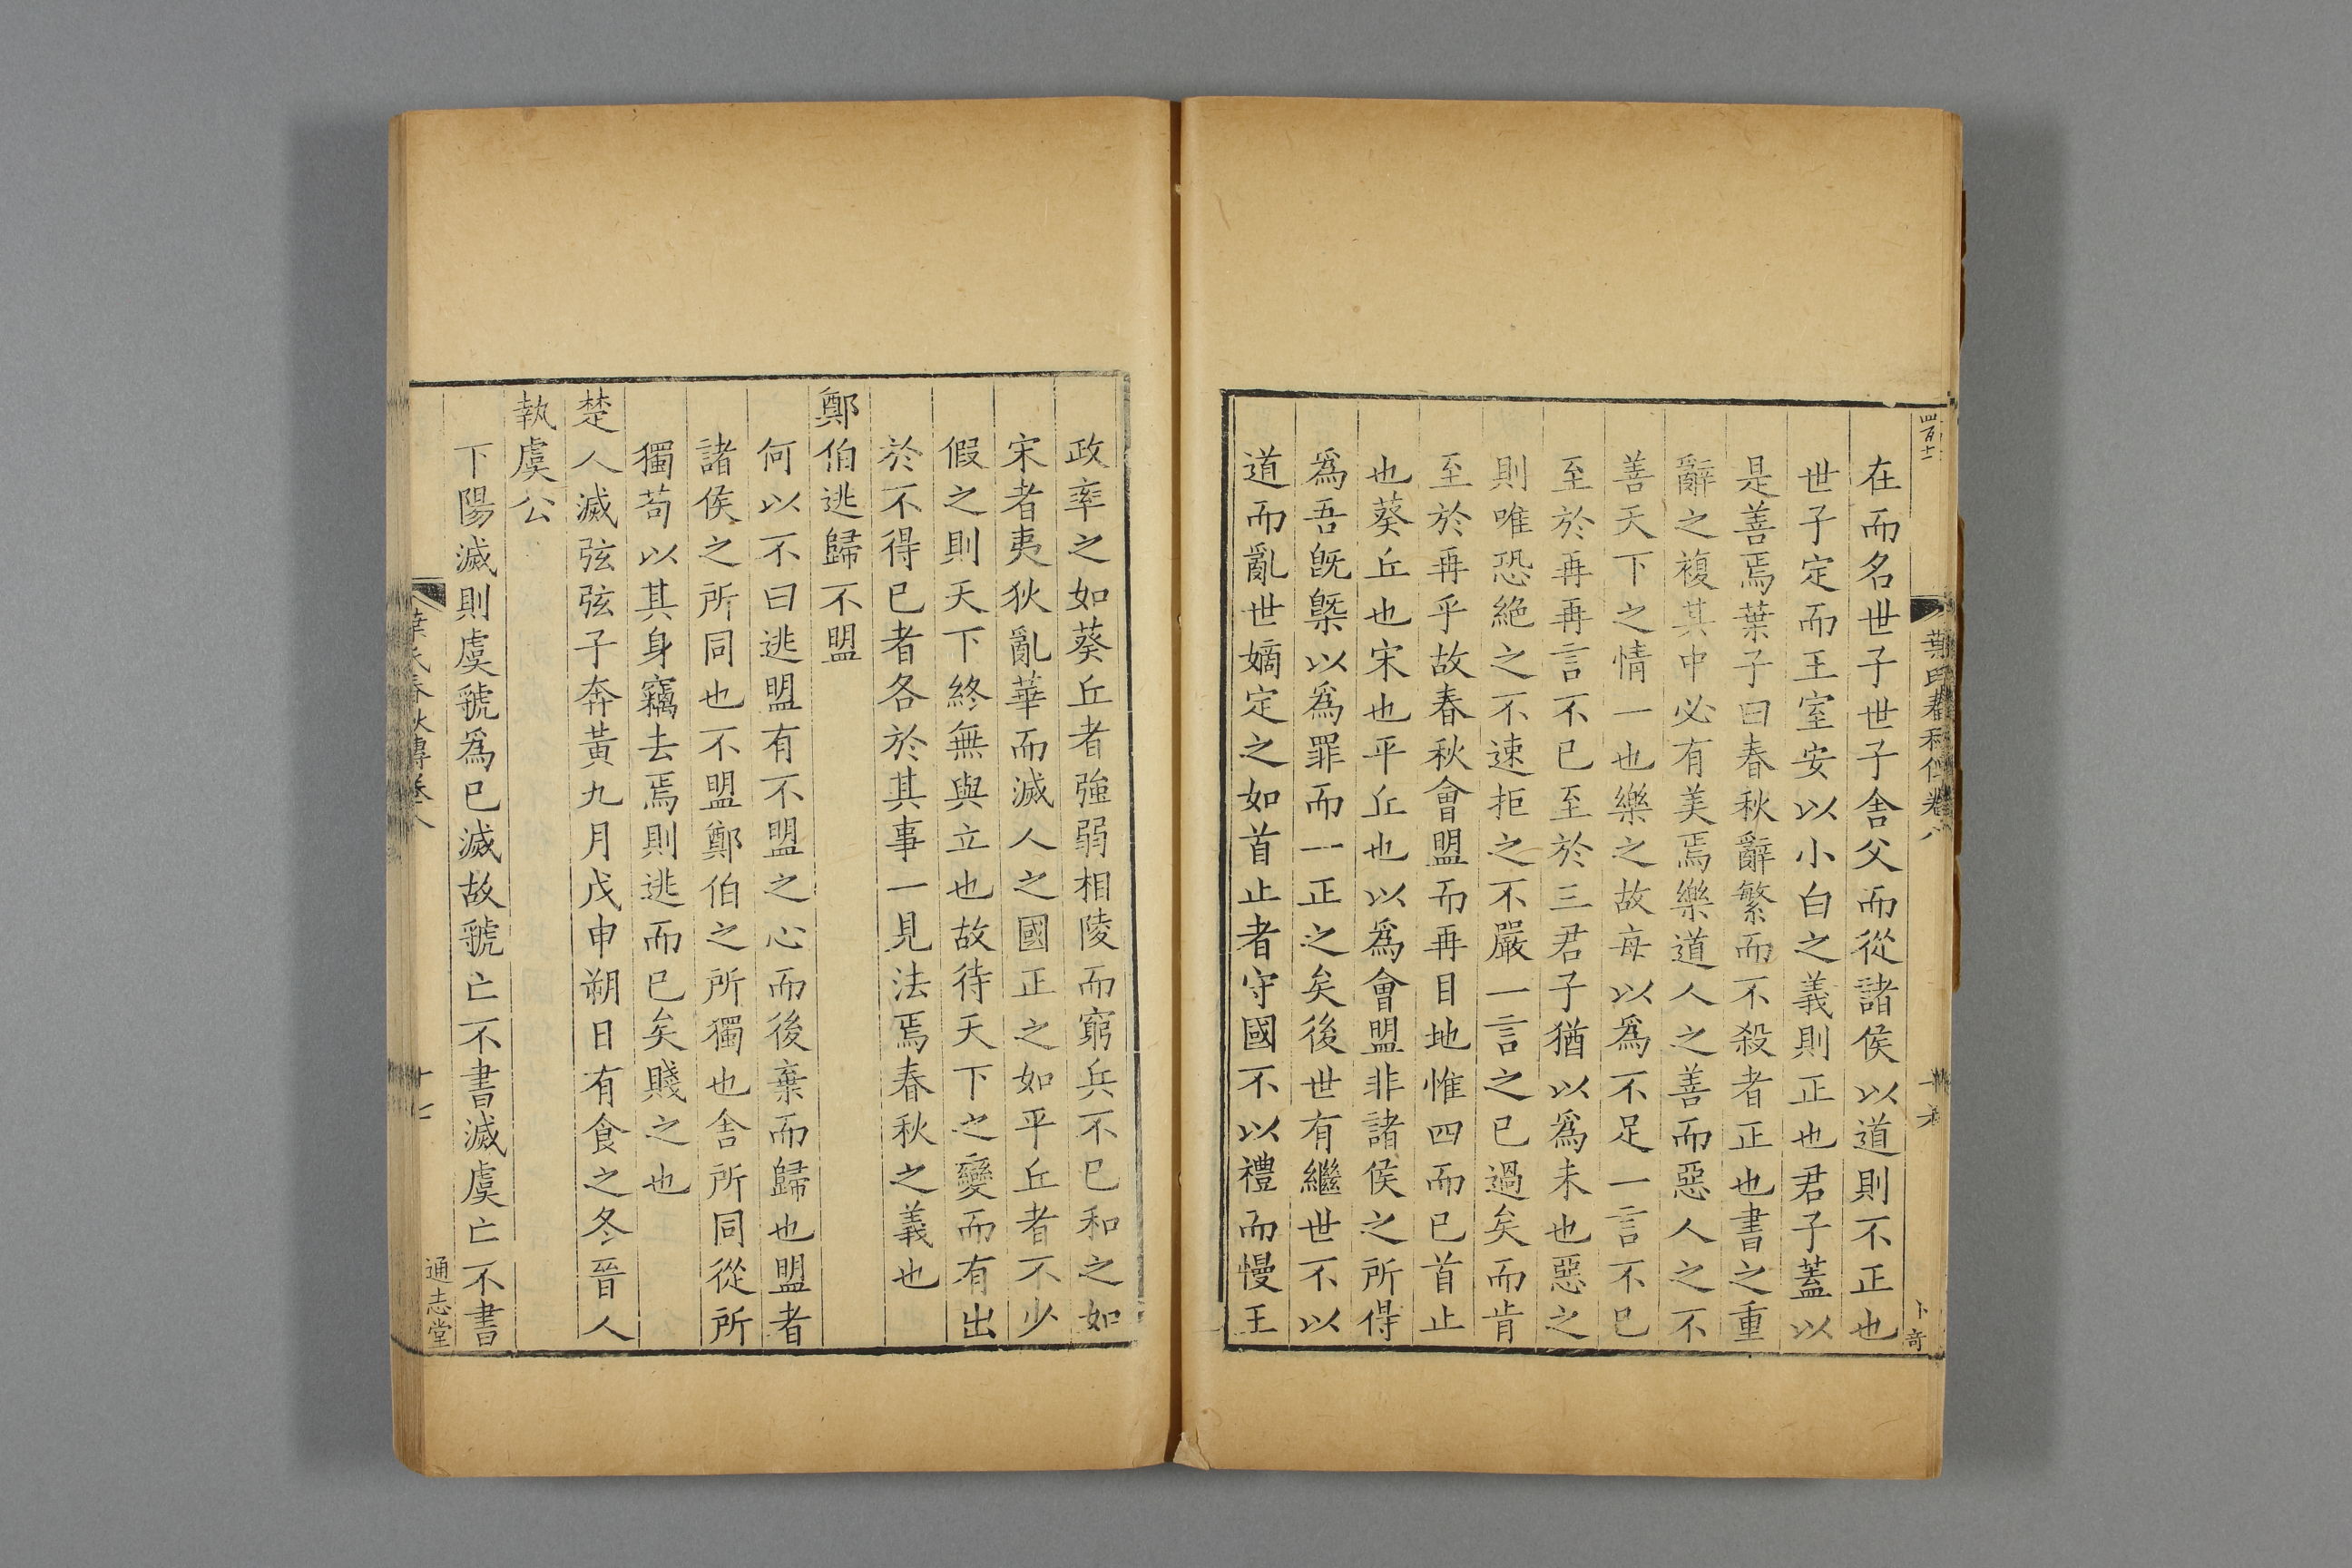 在而名世子世子舍父而從諸侯以道則不正也
世子定而王室安以小白之義則正也君子蓋以
是善焉葉子曰春秋辭繁而不殺者正也書之重
辭之複其中必有美焉樂道人之善而惡人之不
善天下之情一也樂之故每以爲不足一言不已
至於再再言不已至於三君子猶以爲未也惡之
則唯恐絶之不速拒之不嚴一言之已過矣而肯
至於再乎故春秋會盟而再目地惟四而已首止
也葵丘也宋也平丘也以爲會盟非諸侯之所得
爲吾旣槩以爲罪而一正之矣後世有繼世不以
道而亂世嫡定之如首止者守國不以禮而慢王
政率之如葵丘者強弱相陵而窮兵不已和之如
宋者夷狄亂華而滅人之國正之如平丘者不少
假之則天下終無與立也故待天下之變而有出
於不得已者各於其事一見法焉春秋之義也
鄭伯逃歸不盟
何以不曰逃盟有不盟之心而後棄而歸也盟者
諸侯之所同也不盟鄭伯之所獨也舍所同從所
獨苟以其身竊去焉則逃而已矣賤之也
楚人滅弦弦子奔黃九月戊申朔日有食之冬晉人
執虞公
下陽滅則虞虢爲已滅故虢亡不書滅虞亡不書
葉氏春秋傳卷八
十七
通志堂